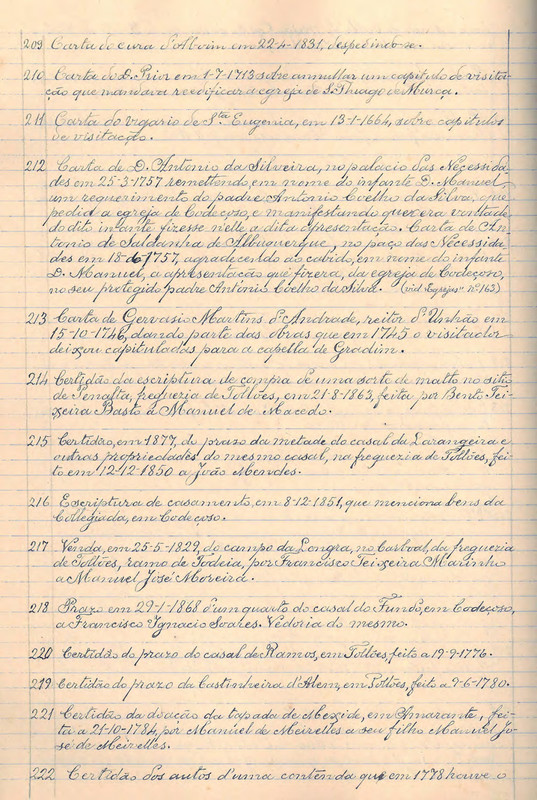 209 Carta do cura d'Alvim em 22-4-1831, despedindo-se.
210 Carta do D. Prior em 1-7-1713 sobre annullar um capitulo de visita-
ção que mandava reedificar a egreja de S. Thiago de Murça.
211 Carta do vigario de S.ta Eugenia, em 13-1-1664, sobre capitulos
de visitação.
212 Carta de D. Antonio da Silveira, no palacio das Necessida-
des em 25-3-1757 remettendo, em nome do infante D. Manuel
um requerimento do padre Antonio Coelho da Silva, que
pedia a egreja de Codeçoso, e manifestando quexera vontade
do dito infante fizesse n'elle a dita apresentação. Carta de An-
tonio de Saldanha de Albuquerque, no paço das Necessida-
des em 18-6-1757, agradecendo ao cabido, em nome do infante
D. Manuel, a apresentação que fizera, da egreja de Codeçoso,
no seu protegido padre Antonio Coelho da Silva. (vid. Egrejas" nº 163)
213 Carta de Gervasio Martins d'Andrade, reitor d'Unhão em
15-10-1746, dando parte das obras que em 1745 o visitador
deixou capituladas para a capella de Gradim.
214 Certidão da escriptura de compra de uma sorte de matto no sitio
de Penalta, freguezia de Tollões, em 21-8-1863, feita por Bento Tei-
xeira Basto a Manuel de Macedo.
215 Certidão, em 1877, do prazo da metade do casal da Larangeira e
outras propriedades do mesmo casal, na freguezia de Tollões, fei-
to em 12-12-1850 a João Mendes.
216 Escriptura de casamento, em 8-12-1851, que menciona bens da
Collegiada, em Codeçoso.
217 Venda, em 25-5-1829, do campo da Longra, no Carvoal, da freguezia
de Tollões, ramo de Tadeia, por Francisco Teixeira Marinho
a Manuel José Moreira.
218 Prazo em 29-1-1868 d'um quarto do casal do Fundo, em Codeçoso,
a Francisco Ignacio Soares. Vedoria do mesmo.
220 Certidão do prazo do casal de Ramos, em Tollões, feito a 19-9-1776.
219 Certidão do prazo da Castinheira d'Alem, em Tollões, feito a 9-6-1780.
221 Certidão da doação da tapada de Mexide, em Amarante, fei-
ta a 21-10-1784, por Manuel de Meirelles a seu filho Manuel Jo-
sé de Meirelles.
222 Certidão dos autos d'uma contenda que em 1778 houve o